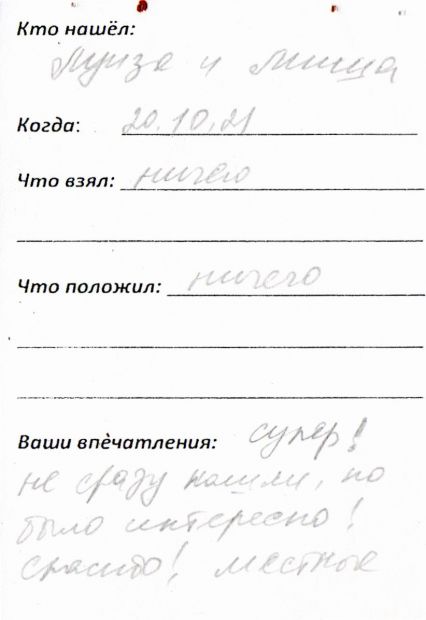 Кто нашёл:
Луиза и Миша
Когда: 20.10.21
Что взял: ничего
Что положил: ничего
Ваши впечатления: супер!
не сразу нашли, но
было интересно!
спасибо! местные